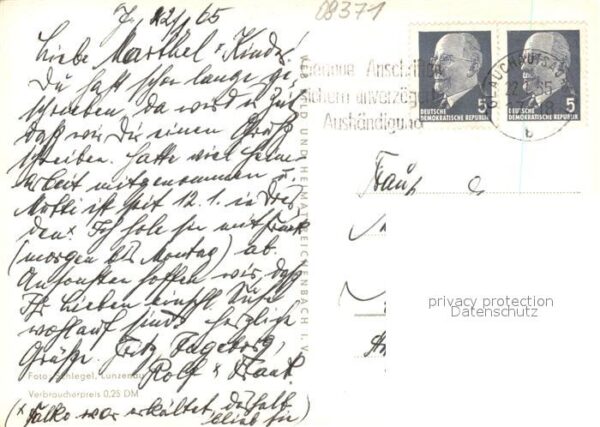 08371
J., 22/1 65
Liebe Marthel u. Kinder!
Du hast schon lange ge-
schrieben, da wird es Zeit
daß wir Dir einen Gruß
schreiben. Hatte viel Heim-
arbeit mitgenommen u.
Mutti ist seit 12.1. in Dres-
den x Ich hole sie mit
(morgen bis Montag) ab.
Ansonsten hoffen wir, daß
Ihr Lieben einschl.
wohlauf seid. Herzliche
Grüße. Fritz, Ingeborg,
Rolf u. Frank.
(x Falko war erkältet, deshalb
blieb sie)
Foto: Schlegel, Lunzenau
Verbraucherpreis 0,25 DM
VEB BILD UND HEIMAT REICHENBACH I. V.
Genaue Anschriften
sichern unverzügliche
Aushändigung
GLAUCHAU (SACHS)
22. 1. 65
18
b
5
DEUTSCHE
DEMOKRATISCHE REPUBLIK
5
DEUTSCHE
DEMOKRATISCHE REPUBLIK
Frau
privacy protection
Datenschutz